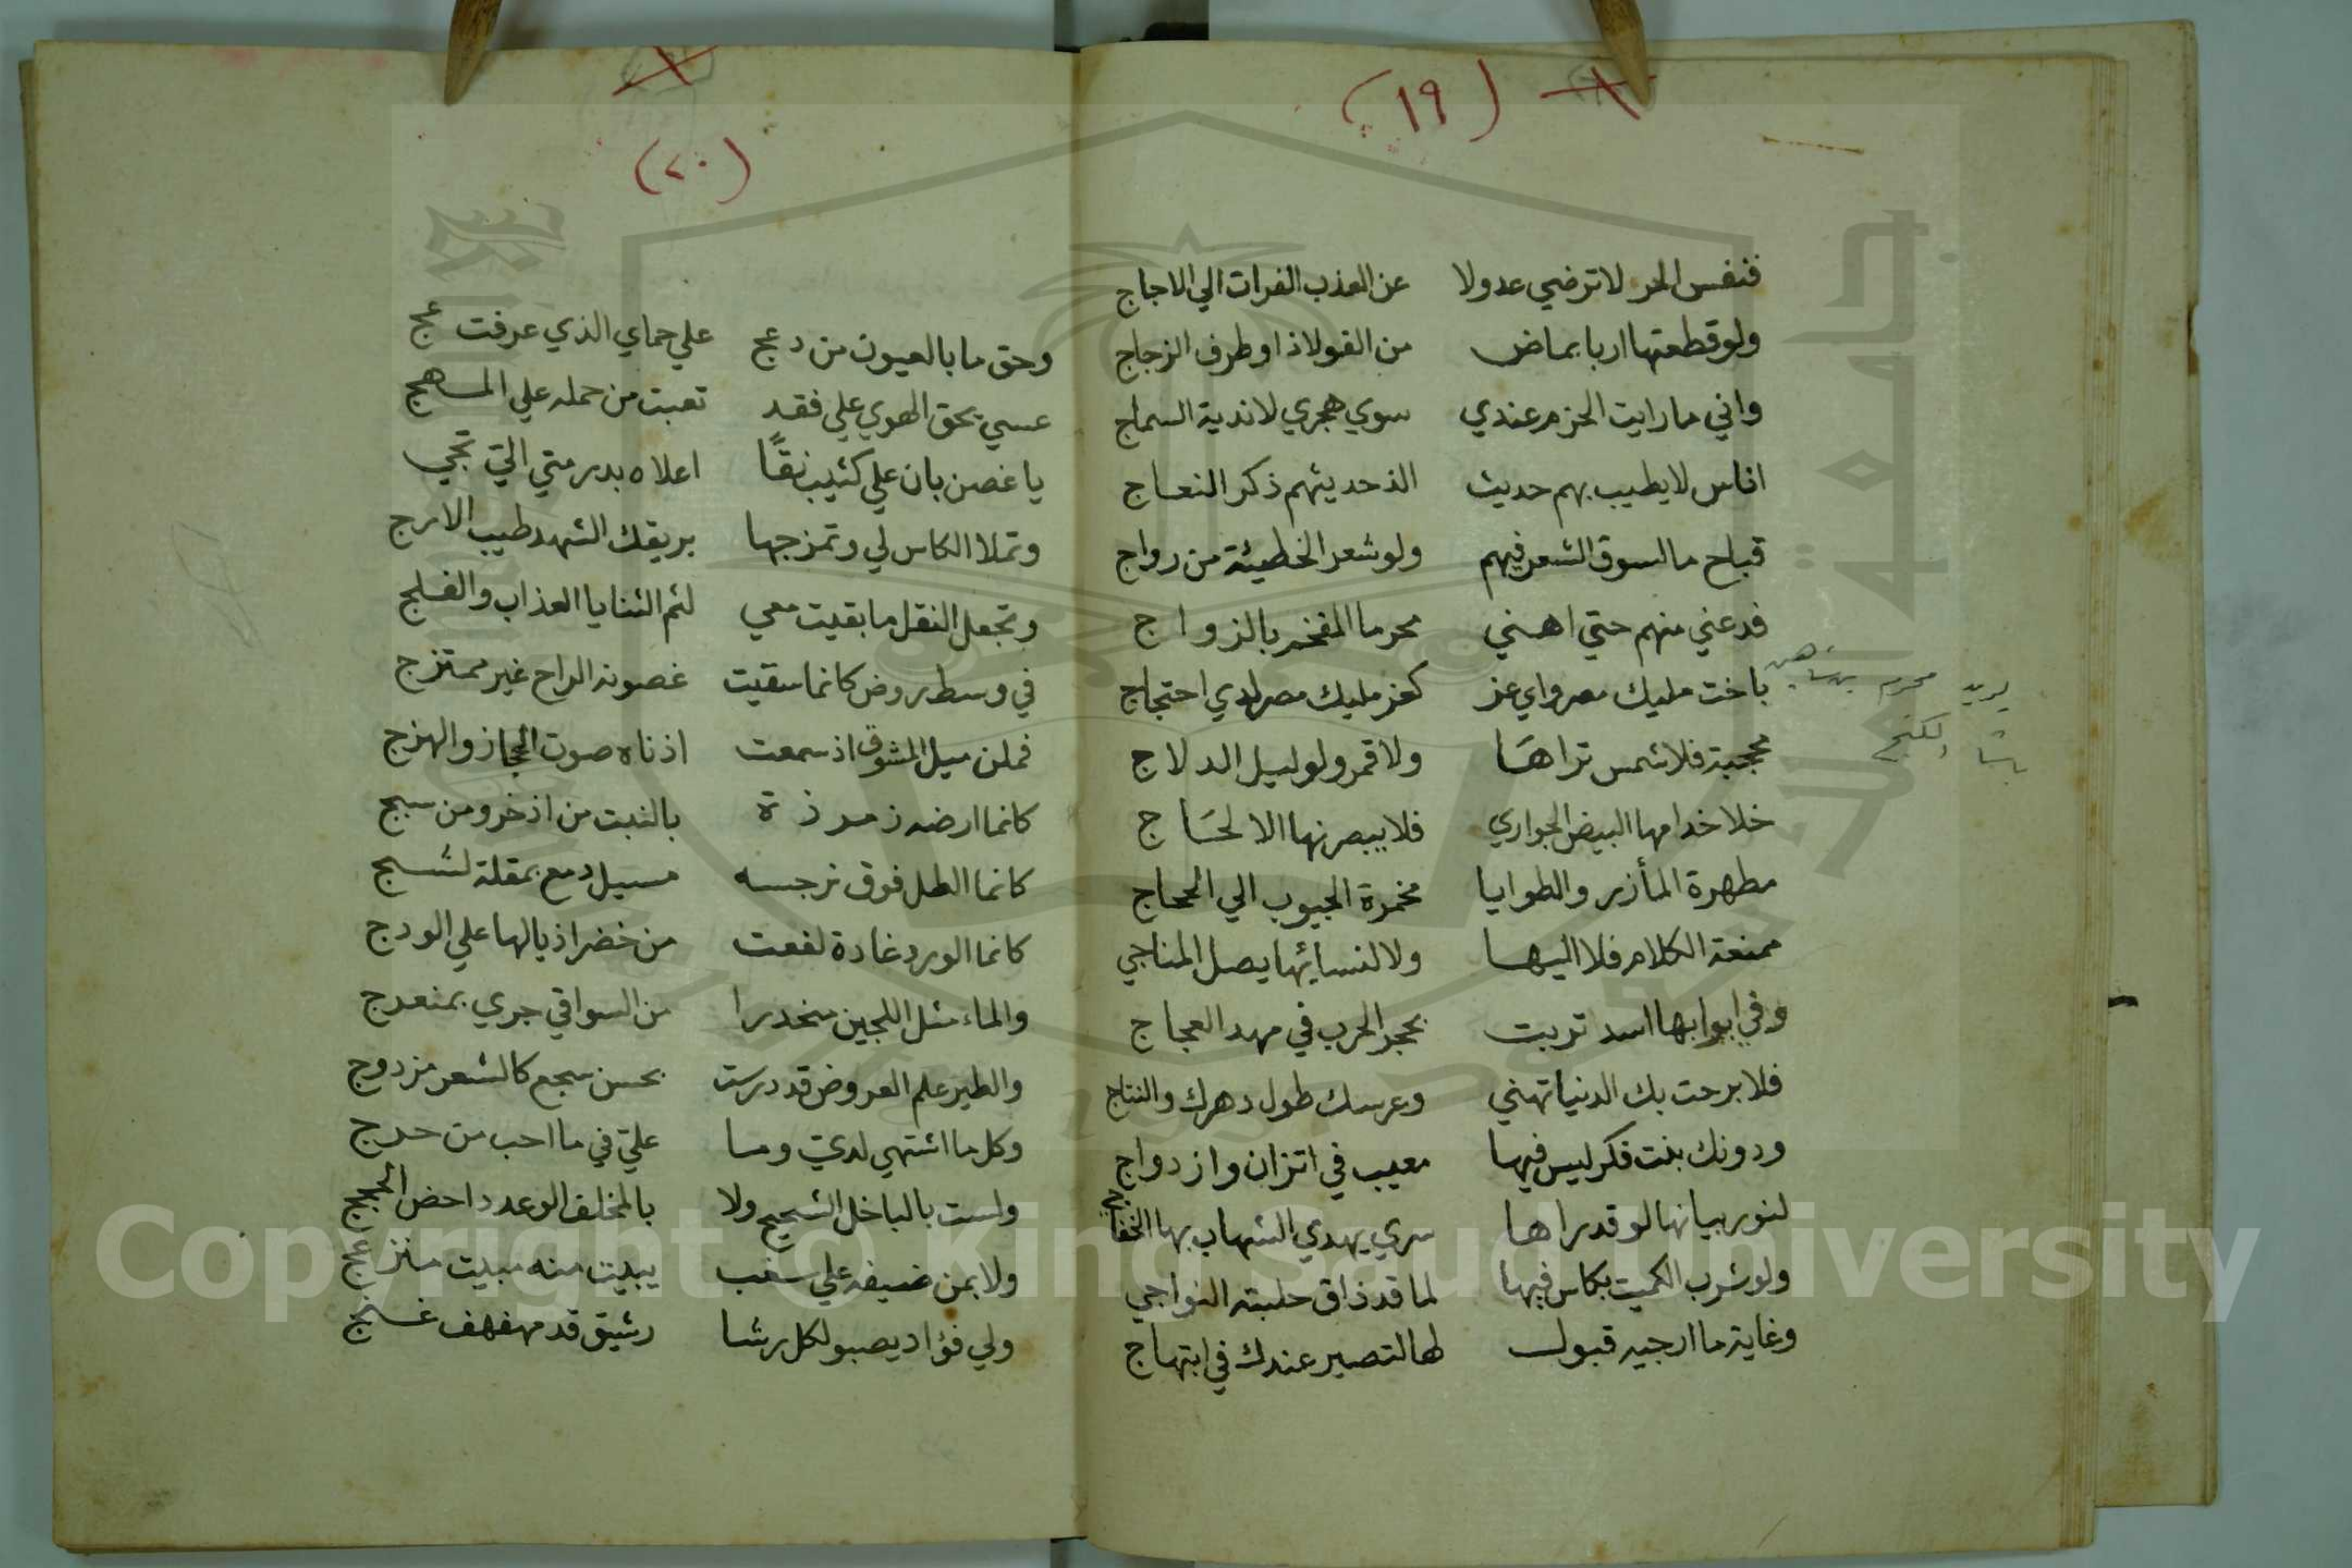 (١٩)
فنفس الحر لا ترضي عدولا عن العذب الفرات الي الاجاج
ولو قطعتها اربا بماض من الفولاذ او طرف الزجاج
واني ما رايت الحزم عندي سوي هجري لاندية السماج
اناس لا يطيب بهم حديث الذ حديثهم ذكر النعاج
قباح ما لسوق الشعر فيهم ولو شعر الخطيئة من رواج
فدعني منهم حتي اهني محرما المفخر بالزواج
باخت مليك مصر واي عز كعز مليك مصر لدي احتجاج
محجبة فلا شمس تراها ولا قمر ولو ليل الدلاج
خلا خدامها البيض الجواري فلا يبصرنها الا لحاج
مطهرة المأزر والطوايا مخمرة الجيوب الي الحجاج
ممنعة الكلام فلا اليها ولا لنسائها يصل المناجي
وفي ابوابها اسد تربت بحجر الحرب في مهد العجاج
فلا برحت بك الدنيا تهني وعرسك طول دهرك والنتاج
ودونك بنت فكر ليس فيها معيب في اتزان وازدواج
لنور بيانها لو قد راها سري يهدي الشهاب بها الخفاجي
ولو شرب الكميت بكاس فيها لما قد ذاق حلبته النواجي
وغاية ما ارجيه قبول لها لتصير عندك في ابتهاج
يريد محرم بيك شاهين
باشا الكنج
(٢٠)
وحق ما بالعيون من دعج علي حماي الذي عرفت عج
عسي بحق الهوي علي فقد تعبت من حمله علي المهج
يا غصن بان علي كثيب نقًا اعلاه بدر متي الي تجي
وتملا الكاس لي وتمزجها بريقك الشهد طيب الارج
وتجعل النقل ما بقيت معي لثم الثنايا العذاب والفلج
في وسط روض كانما سقيت غصونه الراح غير ممتزج
فملن ميل المشوق اذ سمعت اذناه صوت الحجاز والهزج
كانما ارضه زمرذة بالنبت من اذخر ومن سبج
كانما الطل فوق نرجسه مسيل دمع بمقلة لشج
كانما الورد غادة لفعت من خضر اذيالها علي الودج
والماء مثل اللجين منحدرا من السواقي جري بمنعرج
والطير علم العروض قد درست بحسن سجع كالشعر مزدوج
وكل ما اشتهي لدي وما علي في ما احب من حرج
ولست بالباخل الشحيح ولا بالمخلف الوعد داحض الحجج
ولا بمن ضيفه علي سغب يبيت منه مبيت منزعج
ولي فؤاد يصبو لكل رشا رشيق قد مهفهف غنج
Copyright © King Saud University